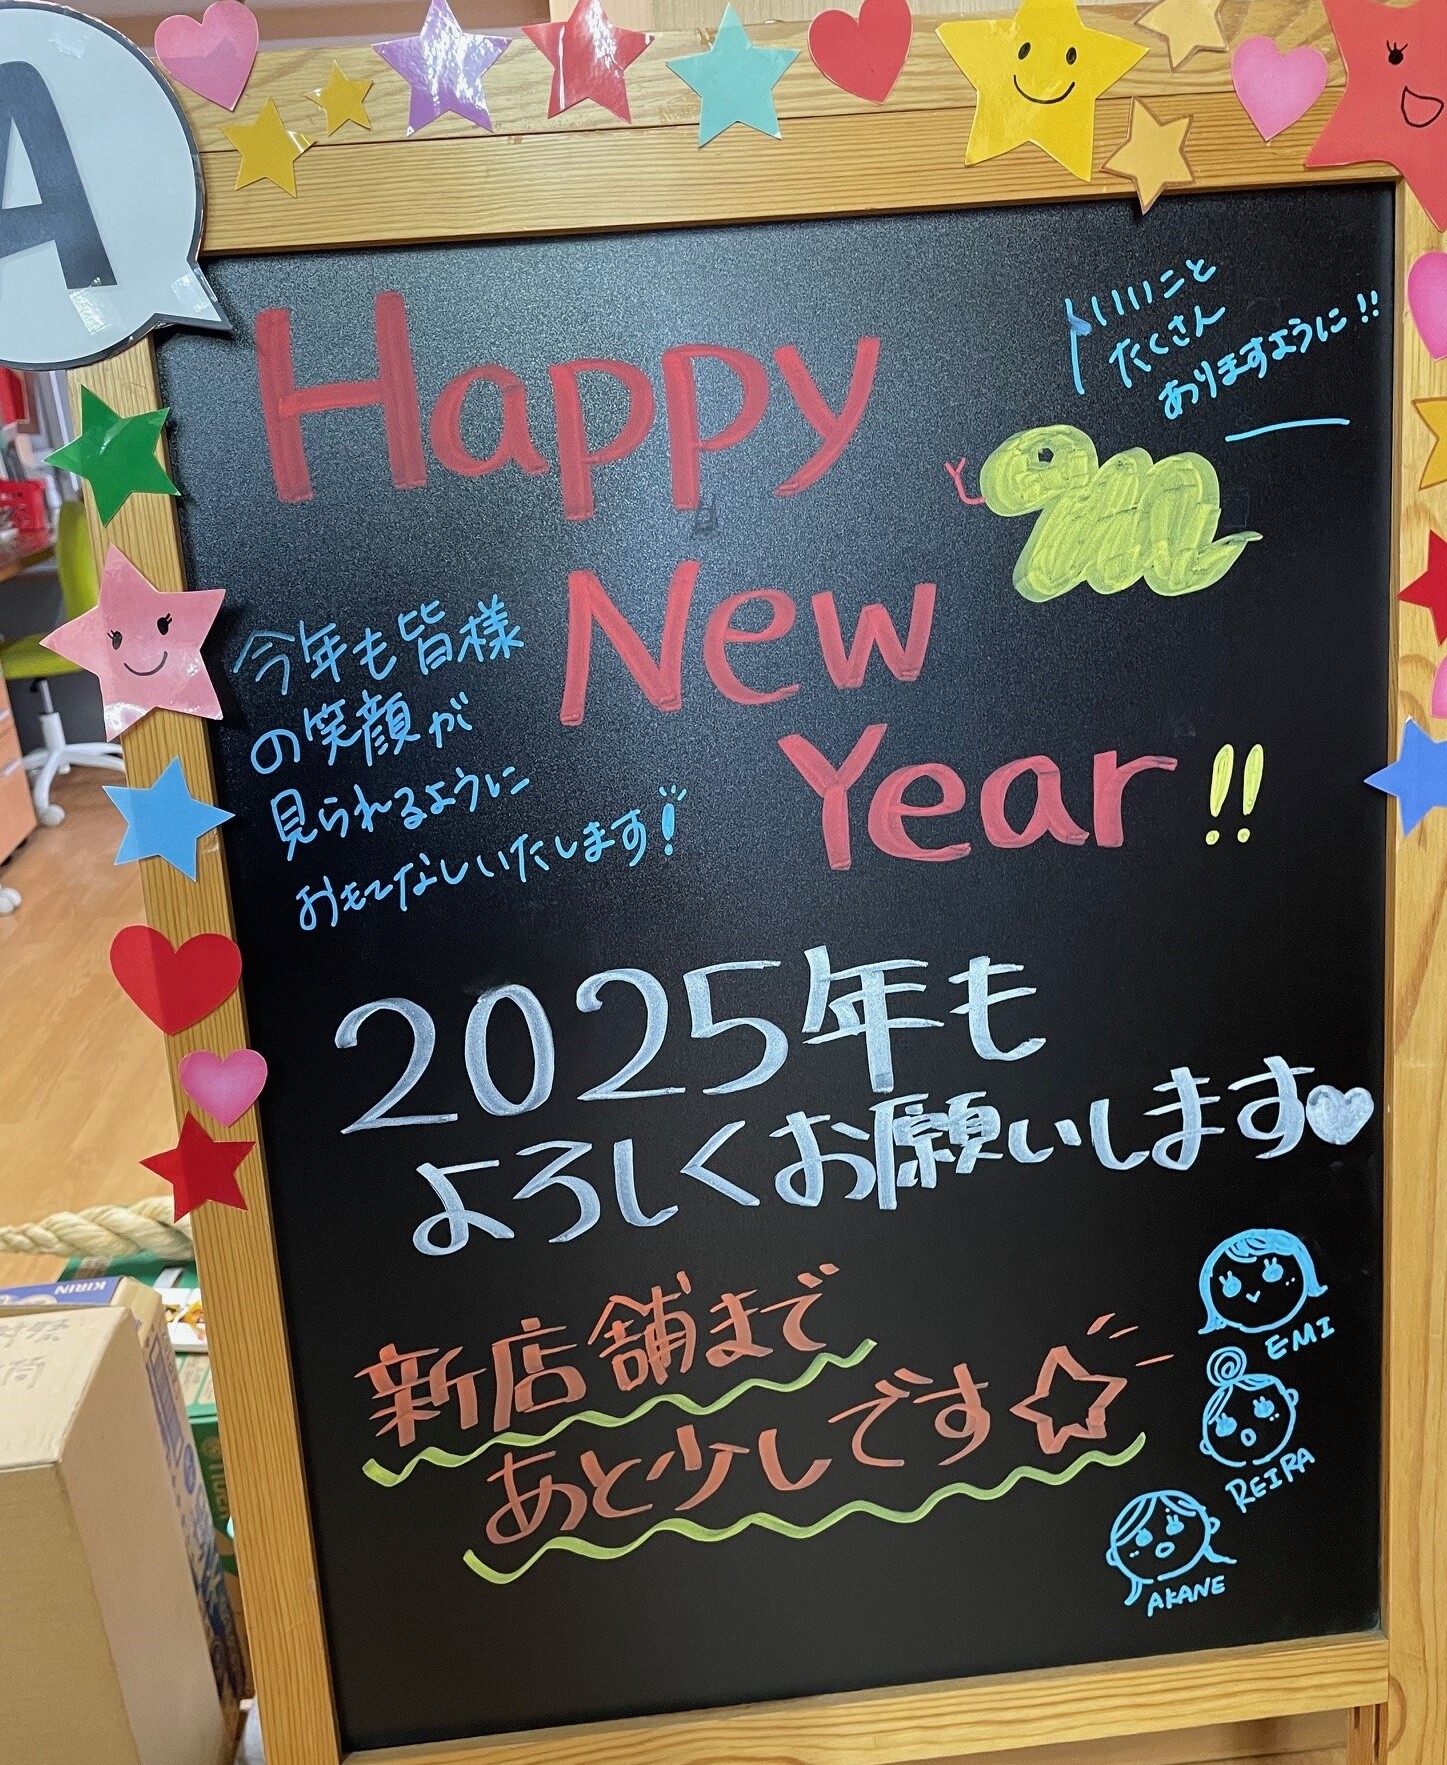 A
Happy
いいこと
たくさん
ありますように!!
New
Year!!
今年も皆様
の笑顔が
見られるように
おもてなしいたします!
2025年も
よろしくお願いします♥
新店舗まで
あと少しです☆
EMI
REIRA
AKANE
KIRIN